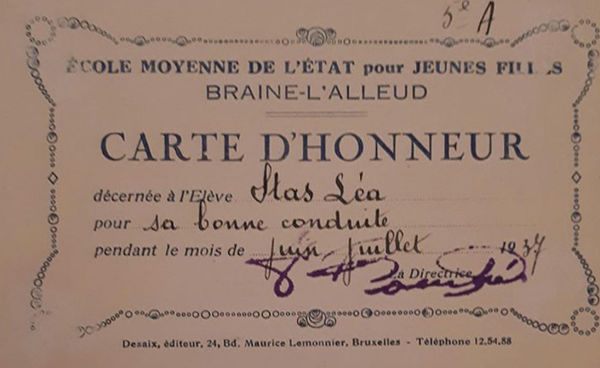 5e A
ÉCOLE MOYENNE DE L'ÉTAT pour JEUNES FILLES
BRAINE-L'ALLEUD
CARTE D'HONNEUR
décernée à l'Elève Stas Léa
pour sa bonne conduite
pendant le mois de Juin Juillet 1937
La Directrice
Desaix, éditeur, 24, Bd. Maurice Lemonnier, Bruxelles - Téléphone 12.54.88